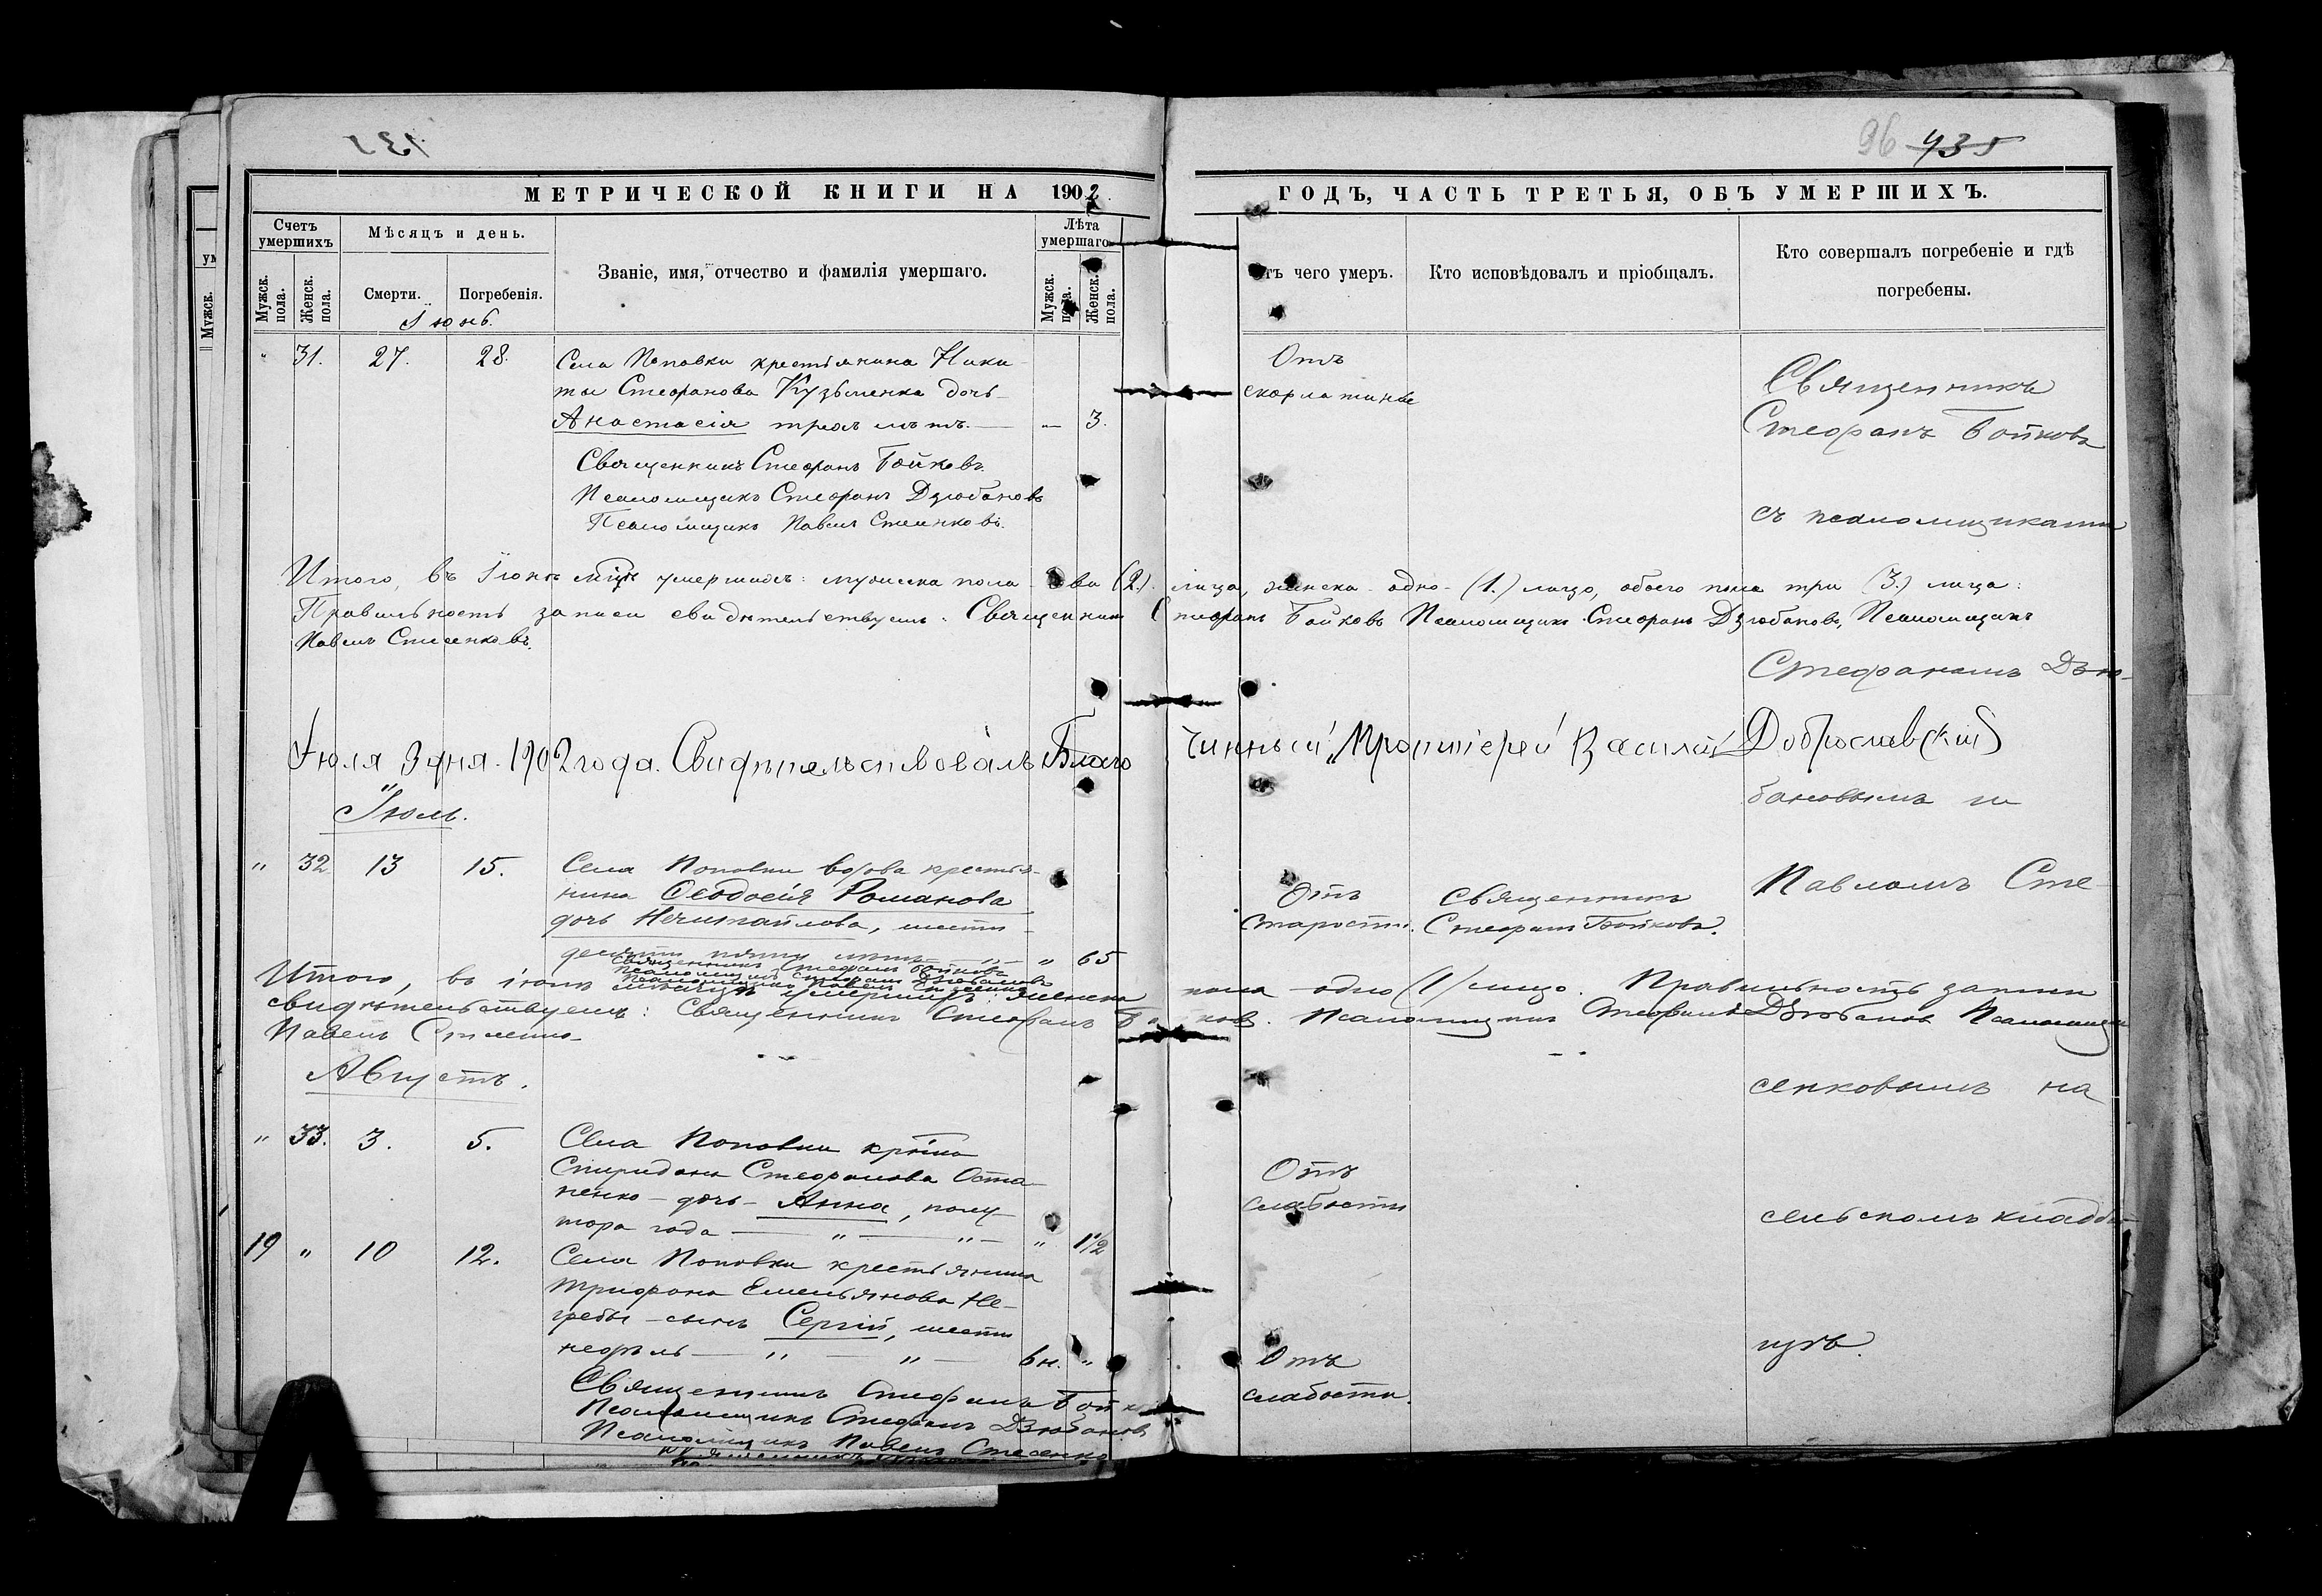 96 435
МЕТРИЧЕСКОЙ КНИГИ НА 1902
ГОДЪ, ЧАСТЬ ТРЕТЬЯ, ОБЪ УМЕРШИХЪ.
Счетъ умершихъ
Мѣсяцъ и день.
Званіе, имя, отчество и фамилія умершаго.
Лѣта умершаго
Мужск. пола.
Женск. пола.
Смерти.
Погребенія.
Мужск. пола.
Женск. пола.
чего умеръ.
Кто исповѣдовалъ и пріобщалъ.
Кто совершалъ погребеніе и гдѣ
погребены.
Іюнь.
" 31. 27. 28. Села Поповки крестьянина Ники-
ты Стефанова Кузьменка дочь
Анастасія трехъ лѣтъ. — 3.
Отъ
скарлатины
Священникъ Стефанъ Бойковъ.
Псаломщикъ Стефанъ Дзюбановъ
Псаломщикъ Павелъ Стесенковъ.
Священникъ
Стефанъ Бойковъ
съ псаломщиками
Итого, въ Іюнѣ мцѣ умершихъ: мужеска пола два (2.) лица, женска одно (1.) лицо, обоего пола три (3.) лица:
Правильность записи свидѣтельствуемъ: Священникъ Стефанъ Бойковъ Псаломщикъ Стефанъ Дзюбановъ, Псаломщикъ
Павелъ Стесенковъ.
Стефаномъ Дзю-
Іюля 3 дня 1902 года. Свидѣтельствовалъ Благочинный, Протоіерей Василій Доброславскій
бановымъ и
Іюль.
" 32 13 15. Села Поповки вдова крестья-
нина Ѳеодосія Романова
дочь Нечитайлова, шести-
десяти пяти лѣтъ " 65
Отъ
старости.
Священникъ
Стефанъ Бойковъ.
Павломъ Сте-
Священникъ Стефанъ Бойковъ
Псаломщикъ Стефанъ Дзюбановъ
Псаломщикъ Павелъ Стесенко
Итого, въ іюлѣ мѣсяцѣ умершихъ: женска пола одно (1) лицо. Правильность записи
свидѣтельствуемъ: Священникъ Стефанъ Бойковъ. Псаломщикъ Стефанъ Дзюбановъ Псаломщикъ
Павелъ Стесенко
Августъ.
сенковымъ на
" 33. 3. 5. Села Поповки кр-на
Спиридона Стефанова Оста-
пенко дочь Анна, полу-
тора года " " " 1 1/2
Отъ
слабости
сельскомъ кладби-
19 " 10 12. Села Поповки крестьянина
Трифона Емельянова Не-
гребы сынъ Сергій, шести
недѣль " " 6 н. "
Отъ
слабости.
щѣ.
Священникъ Стефанъ Бойковъ
Псаломщикъ Стефанъ Дзюбановъ
Псаломщикъ Павелъ Стесенко